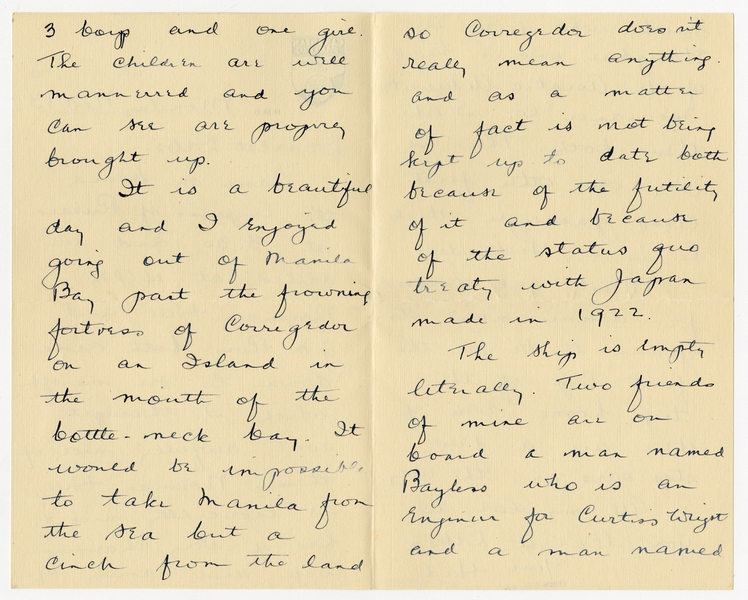 3 boys and one girl.
The children are well
mannerred and you
can see are propirly
brought up.
It is a beautiful
day and I enjoyed
going out of Manila
Bay past the frowning
fortress of Corregedor
on an Island in
the mouth of the
bottle-neck bay. It
would be impossible
to take Manila from
the sea but a
cinch from the land
so Corregedor doesn't
really mean anything.
and as a matter
of fact is not being
kept up to date both
because of the futility
of it and because
of the status quo
treaty with Japan
made in 1922.
The ship is empty
literally. Two friends
of mine are on
board a man named
Bayless who is an
Engineer for Curtiss Wright
and a man named